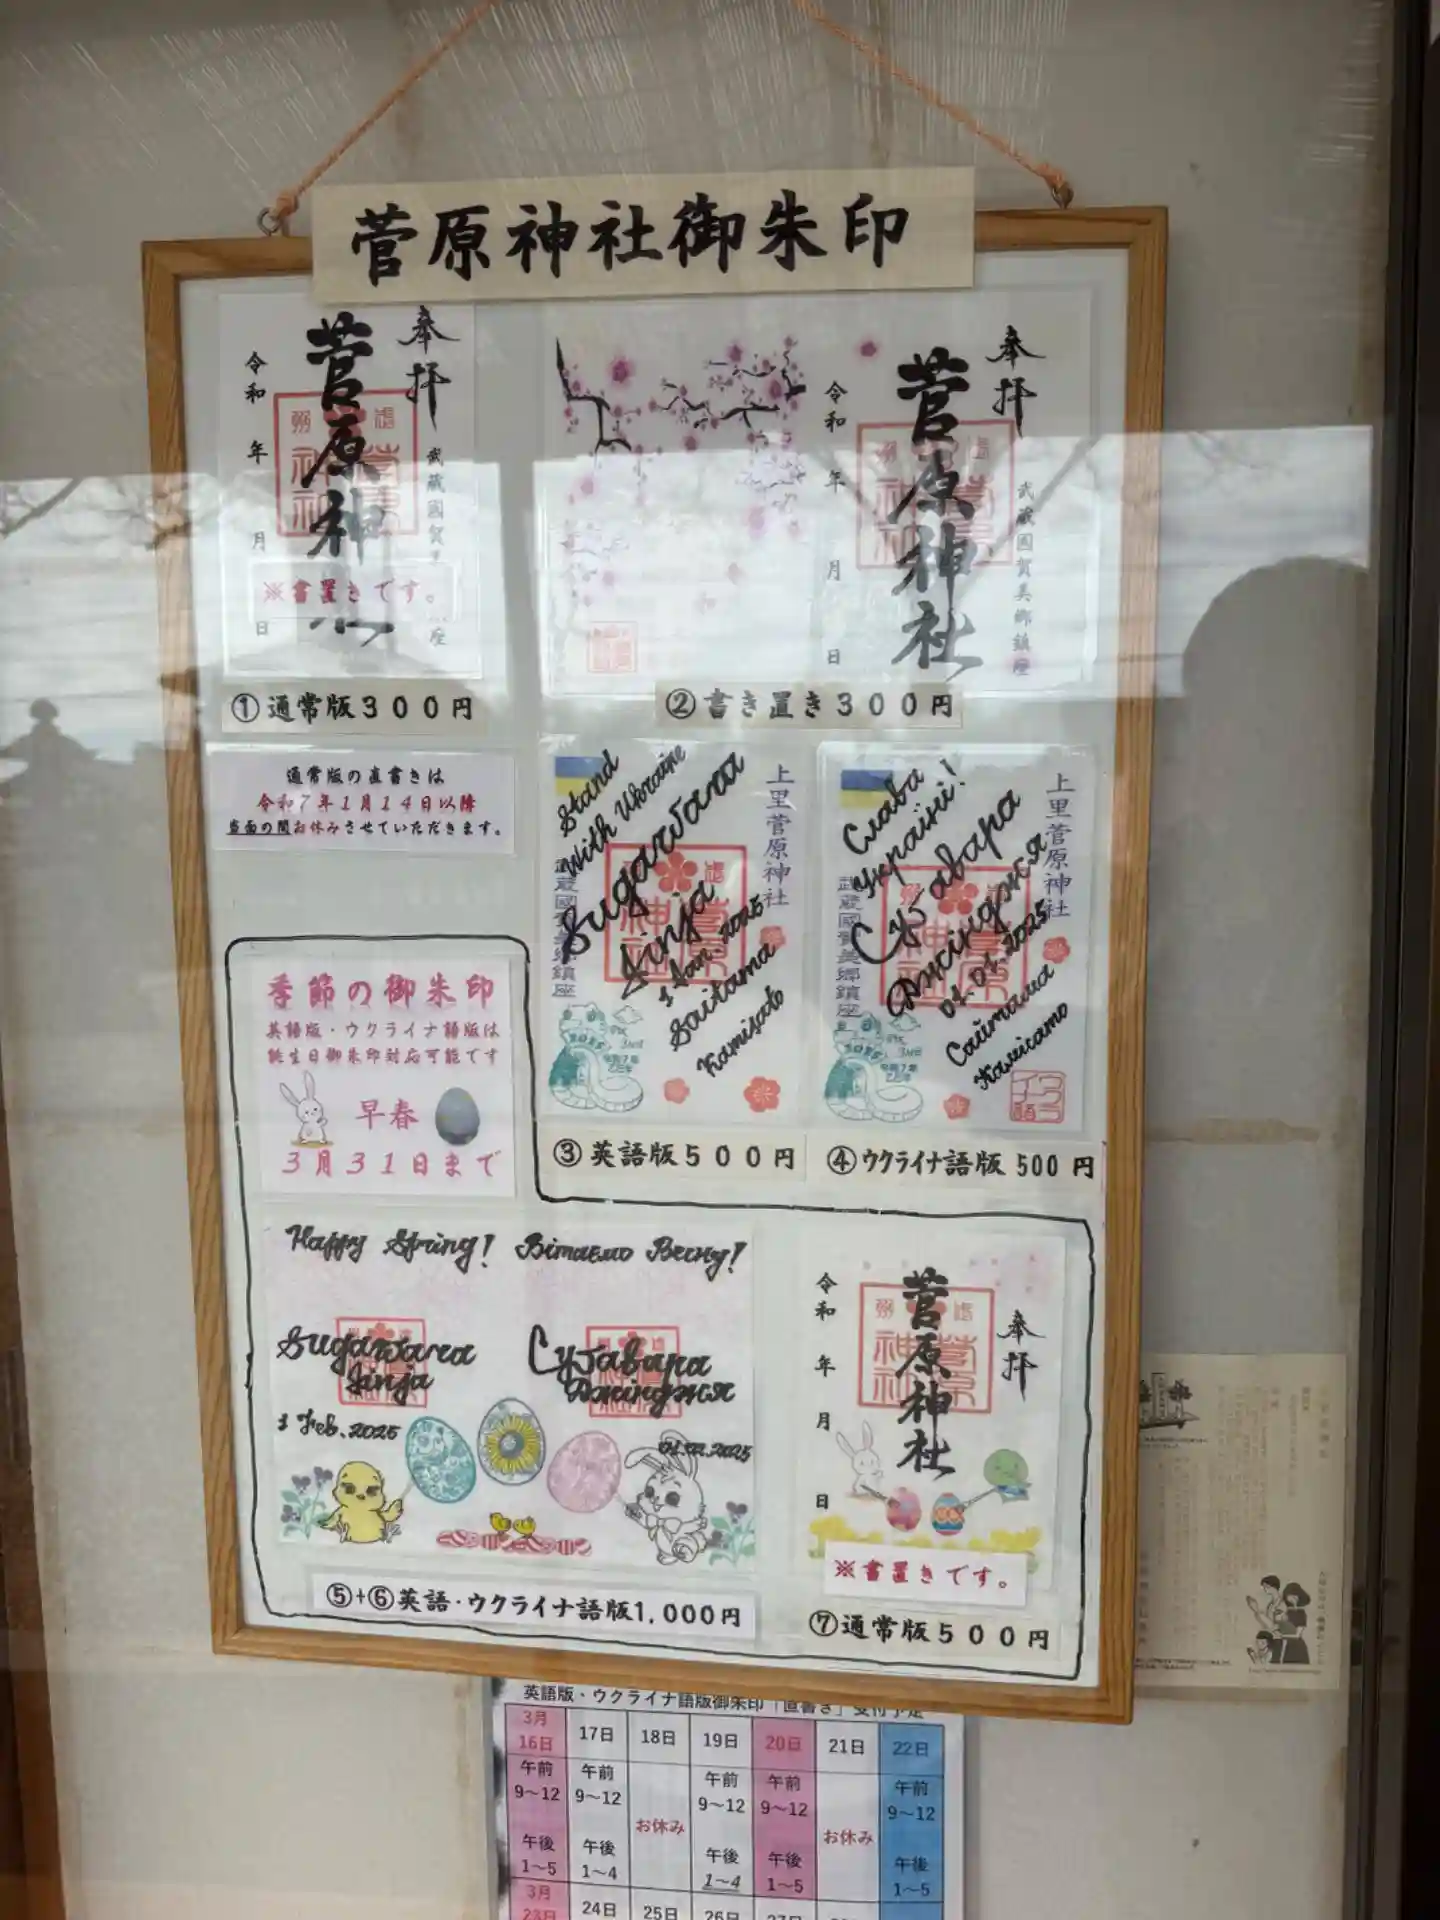 菅原神社御朱印
奉拝
菅原神社
武蔵國賀
座
令和 年 月 日
※書置きです。
①通常版300円
奉拝
菅原神社
武蔵國賀美郷鎮座
令和 年 月 日
②書き置き300円
通常版の直書きは
令和7年1月14日以降
当面の間お休みさせていただきます。
Stand
With Ukraine
Sugawara
Jinja
1 Jan. 2025
Saitama
Kamisato
上里菅原神社
武蔵國賀美郷鎮座
2025
令和7年
③英語版500円
Слава
Україні!
Суґавара
Джінджя
01.01.2025
Сайтама
Камісато
上里菅原神社
武蔵國賀美郷鎮座
2025
令和7年
④ウクライナ語版500円
季節の御朱印
英語版・ウクライナ語版は
誕生日御朱印対応可能です
早春
3月31日まで
Happy Spring! Вітаємо Весну!
Sugawara
Jinja
1 Feb. 2025
Суґавара
Джінджя
01.02.2025
⑤+⑥英語・ウクライナ語版1,000円
奉拝
菅原神社
令和 年 月 日
※書置きです。
⑦通常版500円
英語版・ウクライナ語版御朱印「直書き」受付予定
3月16日 17日 18日 19日 20日 21日 22日
午前 午前 午前 午前 午前
9～12 9～12 お休み 9～12 9～12 お休み 9～12
午後 午後 午後 午後 午後
1～5 1～4 1～4 1～5 1～5
3月23日 24日 25日 26日 27日